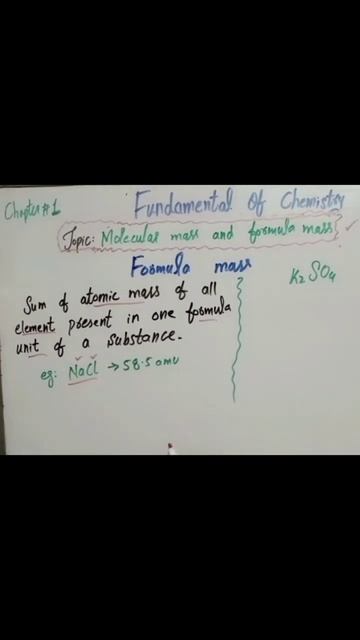 Chapter#1
Fundamental Of Chemistry
Topic: Molecular mass and formula mass
Formula mass
Sum of atomic mass of all
element present in one formula
unit of a substance.
eg: NaCl → 58.5 amu
K₂SO₄